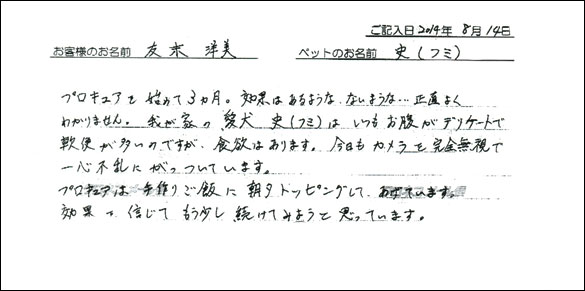 ご記入日2014年 8月 14日
お客様のお名前 友末 洋美 ペットのお名前 史(フミ)
プロキュアを始めて3ヵ月。効果はあるような、ないような…正直よく
わかりません。我が家の愛犬 史(フミ)は いつもお腹がデリケートで
軟便が多いのですが、食欲はあります。今日もカメラを完全無視で
一心不乱にがっついています。
プロキュアは手作りご飯に朝夕トッピングして、あげています。
効果を信じてもう少し続けてみようと思っています。